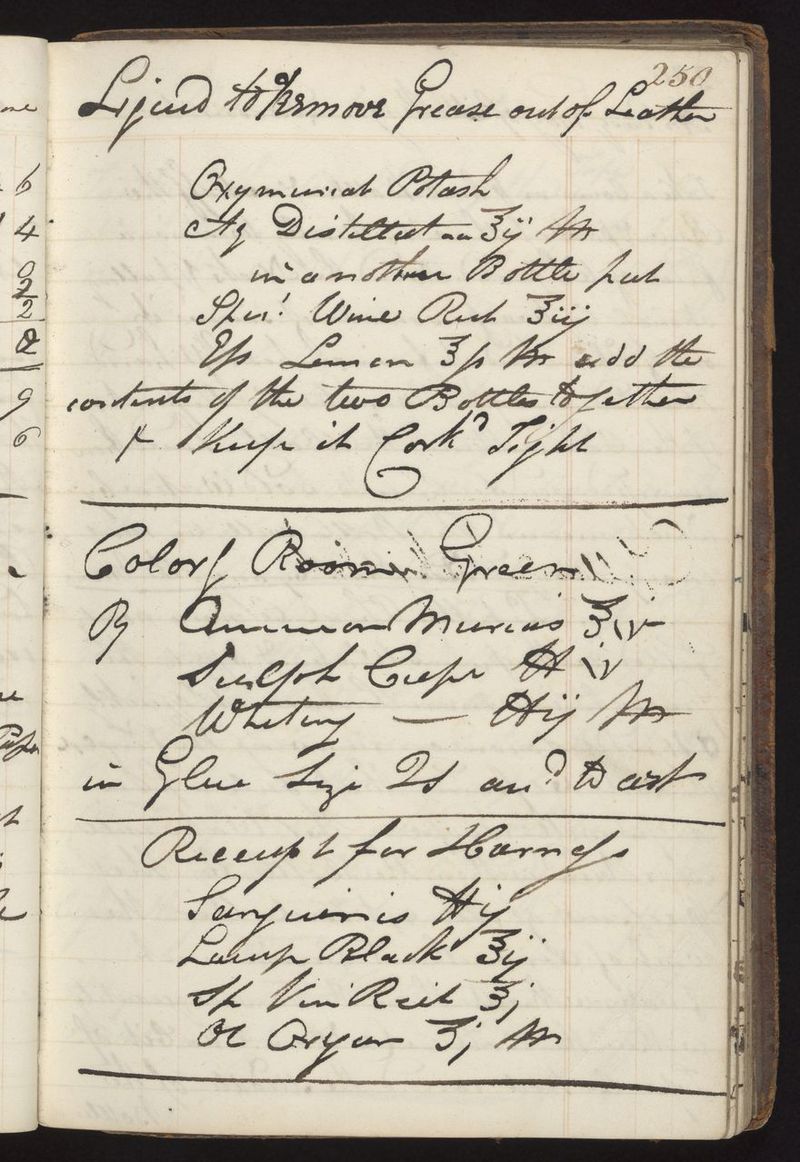 250
Liquid to Remove Grease out of Leather
Oxymuriat Potash
Aq Distilled aa ℥ij M
in another Bottle put
Spir! Wine Rect ℥iij
Ess Lemon ℥ſs M add the
contents of the two Bottles together
& Keep it Cork'd Tight
Colorg Rooms Green
℞ Ammon Murias ℥iv
Sulph Cupr ℔ iv
Whiting — ℔ij M
in Glue Size 2s
Receipt for Harneſs
Sanguinis ℔ij
Lamp Black ℥ij
Sp Vin Rect ℥j
Ol Orygan ℥j M
6
4
0
2
2
9
6